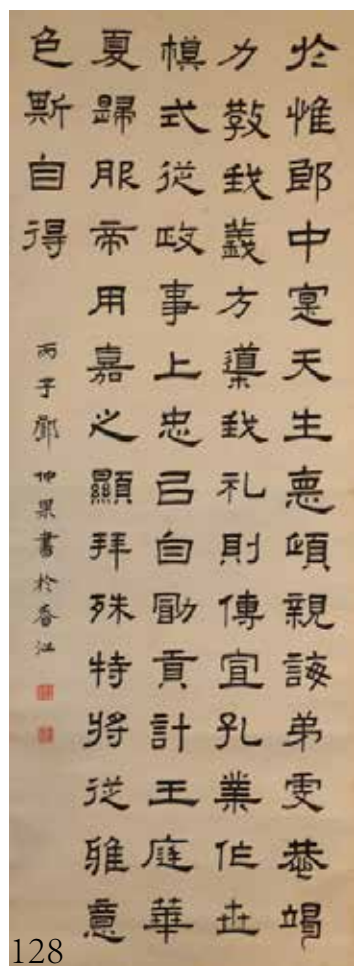 於惟郎中寔天生悳頎親誨弟虔恭竭
力教我義方導我礼則傳宣孔業作世
模式從政事上忠㠯自勖貢計王庭華
夏歸服帝用嘉之顯拜殊特將從雅意
色斯自得
丙子鄧仲果書於香江
128